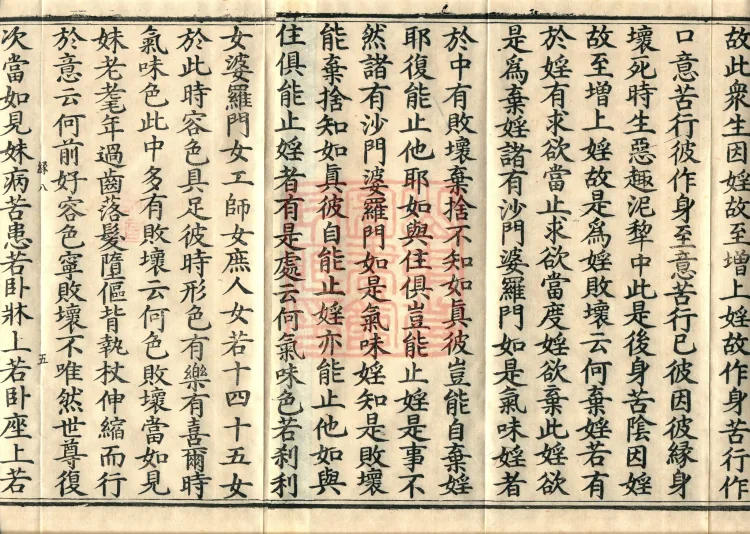 故此衆生因婬故至增上婬故作身苦行作
口意苦行彼作身至意苦行已彼因彼緣身
壞死時生惡趣泥犂中此是後身苦陰因婬
故至增上婬故是爲婬敗壞云何棄婬若有
於婬有求欲當止求欲當度婬欲棄此婬欲
是爲棄婬諸有沙門婆羅門如是氣味婬者
於中有敗壞棄捨不知如真彼豈能自棄婬
耶復能止他耶如與住俱豈能止婬是事不
然諸有沙門婆羅門如是氣味婬知是敗壞
能棄捨知如真彼自能止婬亦能止他如與
住俱能止婬者有是處云何氣味色若刹利
女婆羅門女工師女庶人女若十四十五女
於此時容色具足彼時形色有樂有喜爾時
氣味色此中多有敗壞云何色敗壞當如見
妹老耄年過齒落髮墮傴背執杖伸縮而行
於意云何前好容色寧敗壞不唯然世尊復
緣八 五
次當如見妹病苦患若卧牀上若卧座上若